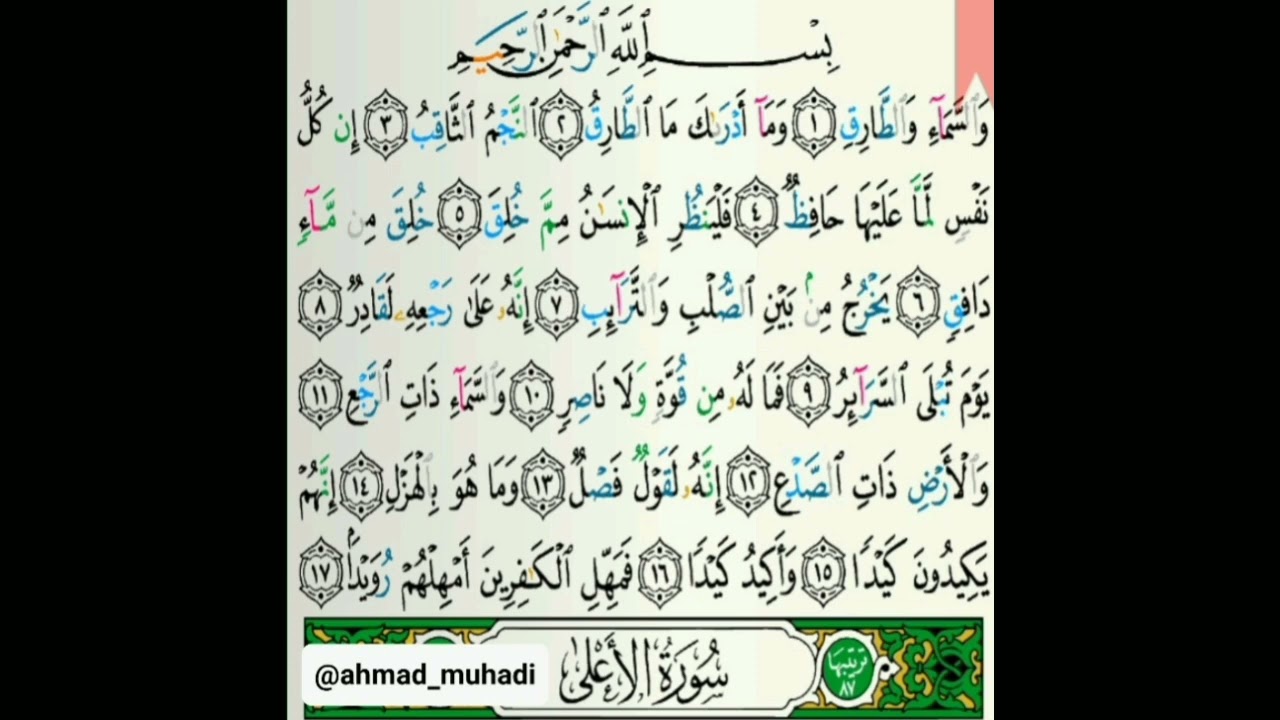 بِسْمِ ٱللَّهِ ٱلرَّحْمَٰنِ ٱلرَّحِيمِ
وَٱلسَّمَآءِ وَٱلطَّارِقِ ١ وَمَآ أَدْرَىٰكَ مَا ٱلطَّارِقُ ٢ ٱلنَّجْمُ ٱلثَّاقِبُ ٣ إِن كُلُّ
نَفْسٍ لَّمَّا عَلَيْهَا حَافِظٌ ٤ فَلْيَنظُرِ ٱلْإِنسَٰنُ مِمَّ خُلِقَ ٥ خُلِقَ مِن مَّآءٍ
دَافِقٍ ٦ يَخْرُجُ مِنۢ بَيْنِ ٱلصُّلْبِ وَٱلتَّرَآئِبِ ٧ إِنَّهُۥ عَلَىٰ رَجْعِهِۦ لَقَادِرٌ ٨
يَوْمَ تُبْلَى ٱلسَّرَآئِرُ ٩ فَمَا لَهُۥ مِن قُوَّةٍ وَلَا نَاصِرٍ ١٠ وَٱلسَّمَآءِ ذَاتِ ٱلرَّجْعِ ١١
وَٱلْأَرْضِ ذَاتِ ٱلصَّدْعِ ١٢ إِنَّهُۥ لَقَوْلٌ فَصْلٌ ١٣ وَمَا هُوَ بِٱلْهَزْلِ ١٤ إِنَّهُمْ
يَكِيدُونَ كَيْدًا ١٥ وَأَكِيدُ كَيْدًا ١٦ فَمَهِّلِ ٱلْكَٰفِرِينَ أَمْهِلْهُمْ رُوَيْدًۢا ١٧
تَرتيبها ٨٧
سُورَةُ الأَعْلَىٰ
@ahmad_muhadi